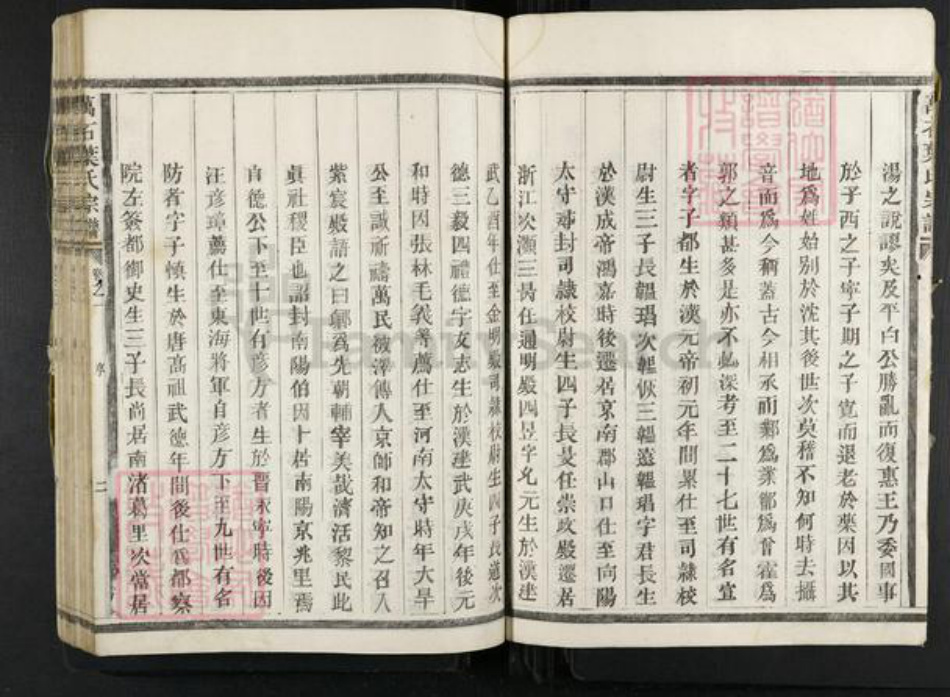 湯之說謬矣及平白公勝亂而復惠王乃委國事
於子西之子寧子期之子寬而退老於葉因以其
地爲姓始别於沈其後世次莫稽不知何時去攝
音而爲今稱蓋古今相承而鄴爲業鄫爲曾霍爲
郭之類甚多是亦不必深考至二十七世有名宣
者字子都生於漢元帝初元年間累仕至司隷校
尉生三子長韞瑁次韞恢三韞遠韞瑁字君長生
於漢成帝鴻嘉時後遷居京南郡山口仕至向陽
太守尋封司隷校尉生四子長旻任崇政殿遷居
浙江次灝三昺任通明殿四昱字允元生於漢建
武乙酉年仕至金明殿司隷校尉生四子長道次
德三毅四禮德字友志生於漢建武庚戌年後元
和時因張林毛義薦仕至河南太守時年大旱
公至誠祈禱萬民被澤傳人京師和帝知之召入
紫宸殿語之曰卿爲先朝輔宰美哉濟活黎民此
眞社稷臣也詔封南陽伯因卜居南陽京兆里焉
自德公下至十世有彦方者生於晋永寧時後因
汪彦璋薦仕至東海將軍自彦方下至九世有名
防者字子愼生於唐高祖武德年間後仕爲都察
院左僉都御史生三子長尚居南渚葛里次當居
萬石葉氏宗譜
卷之一
序
二
FamilySearch